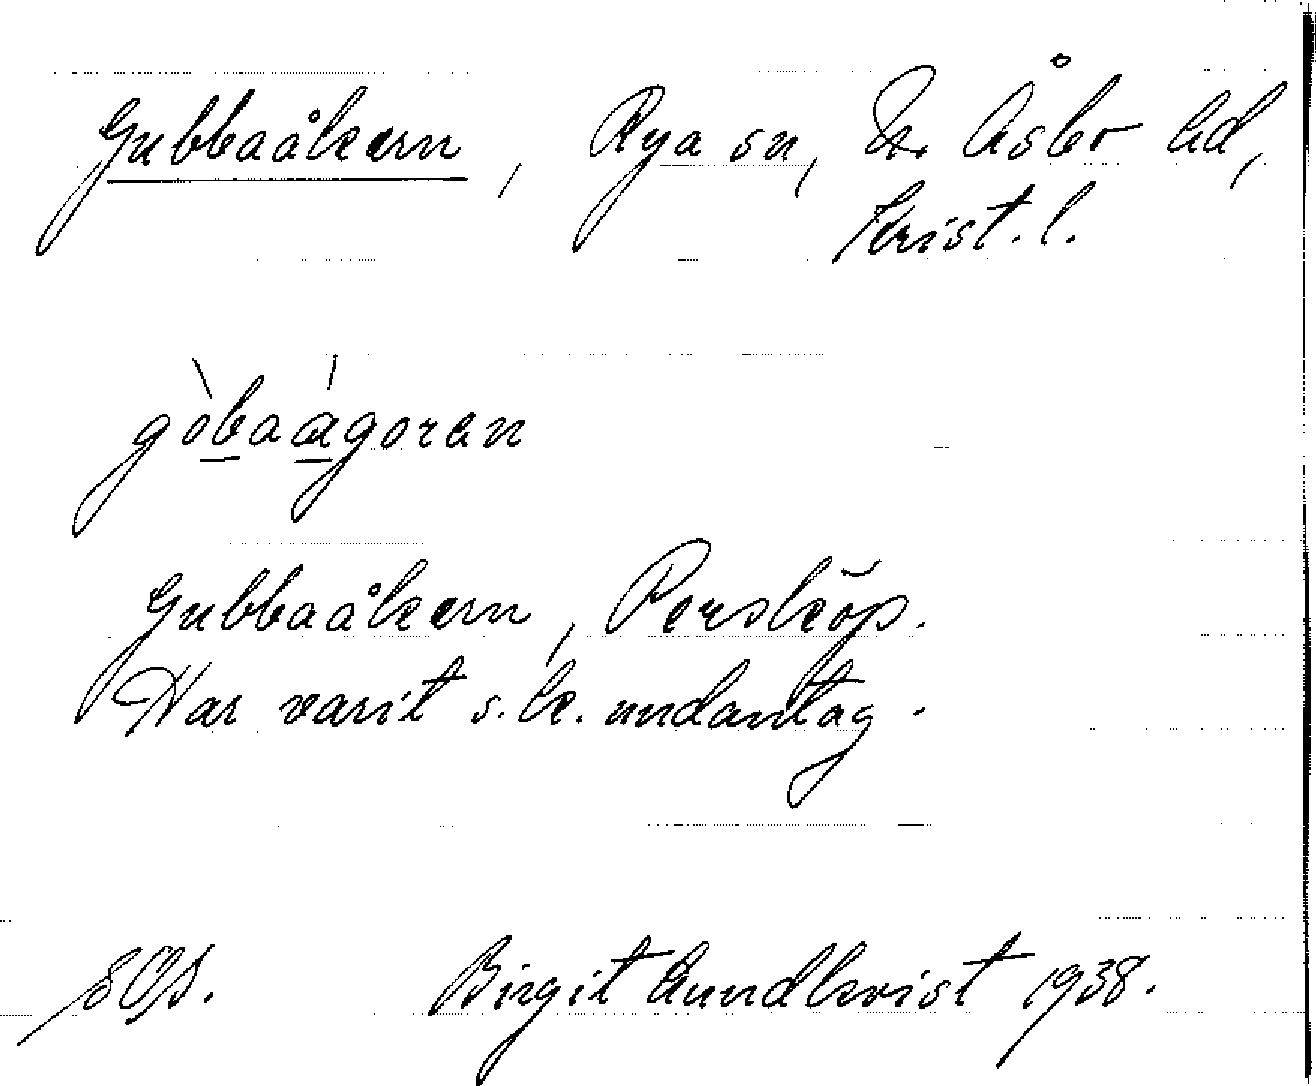 Gubbaåkern, Rya sn, N. Åsbo hd,
Krist. l.
gòbaágoran
Gubbaåkern, Perskôp.
Har varit s.k. undantag.
SOS. Birgit Lundkvist 1938.